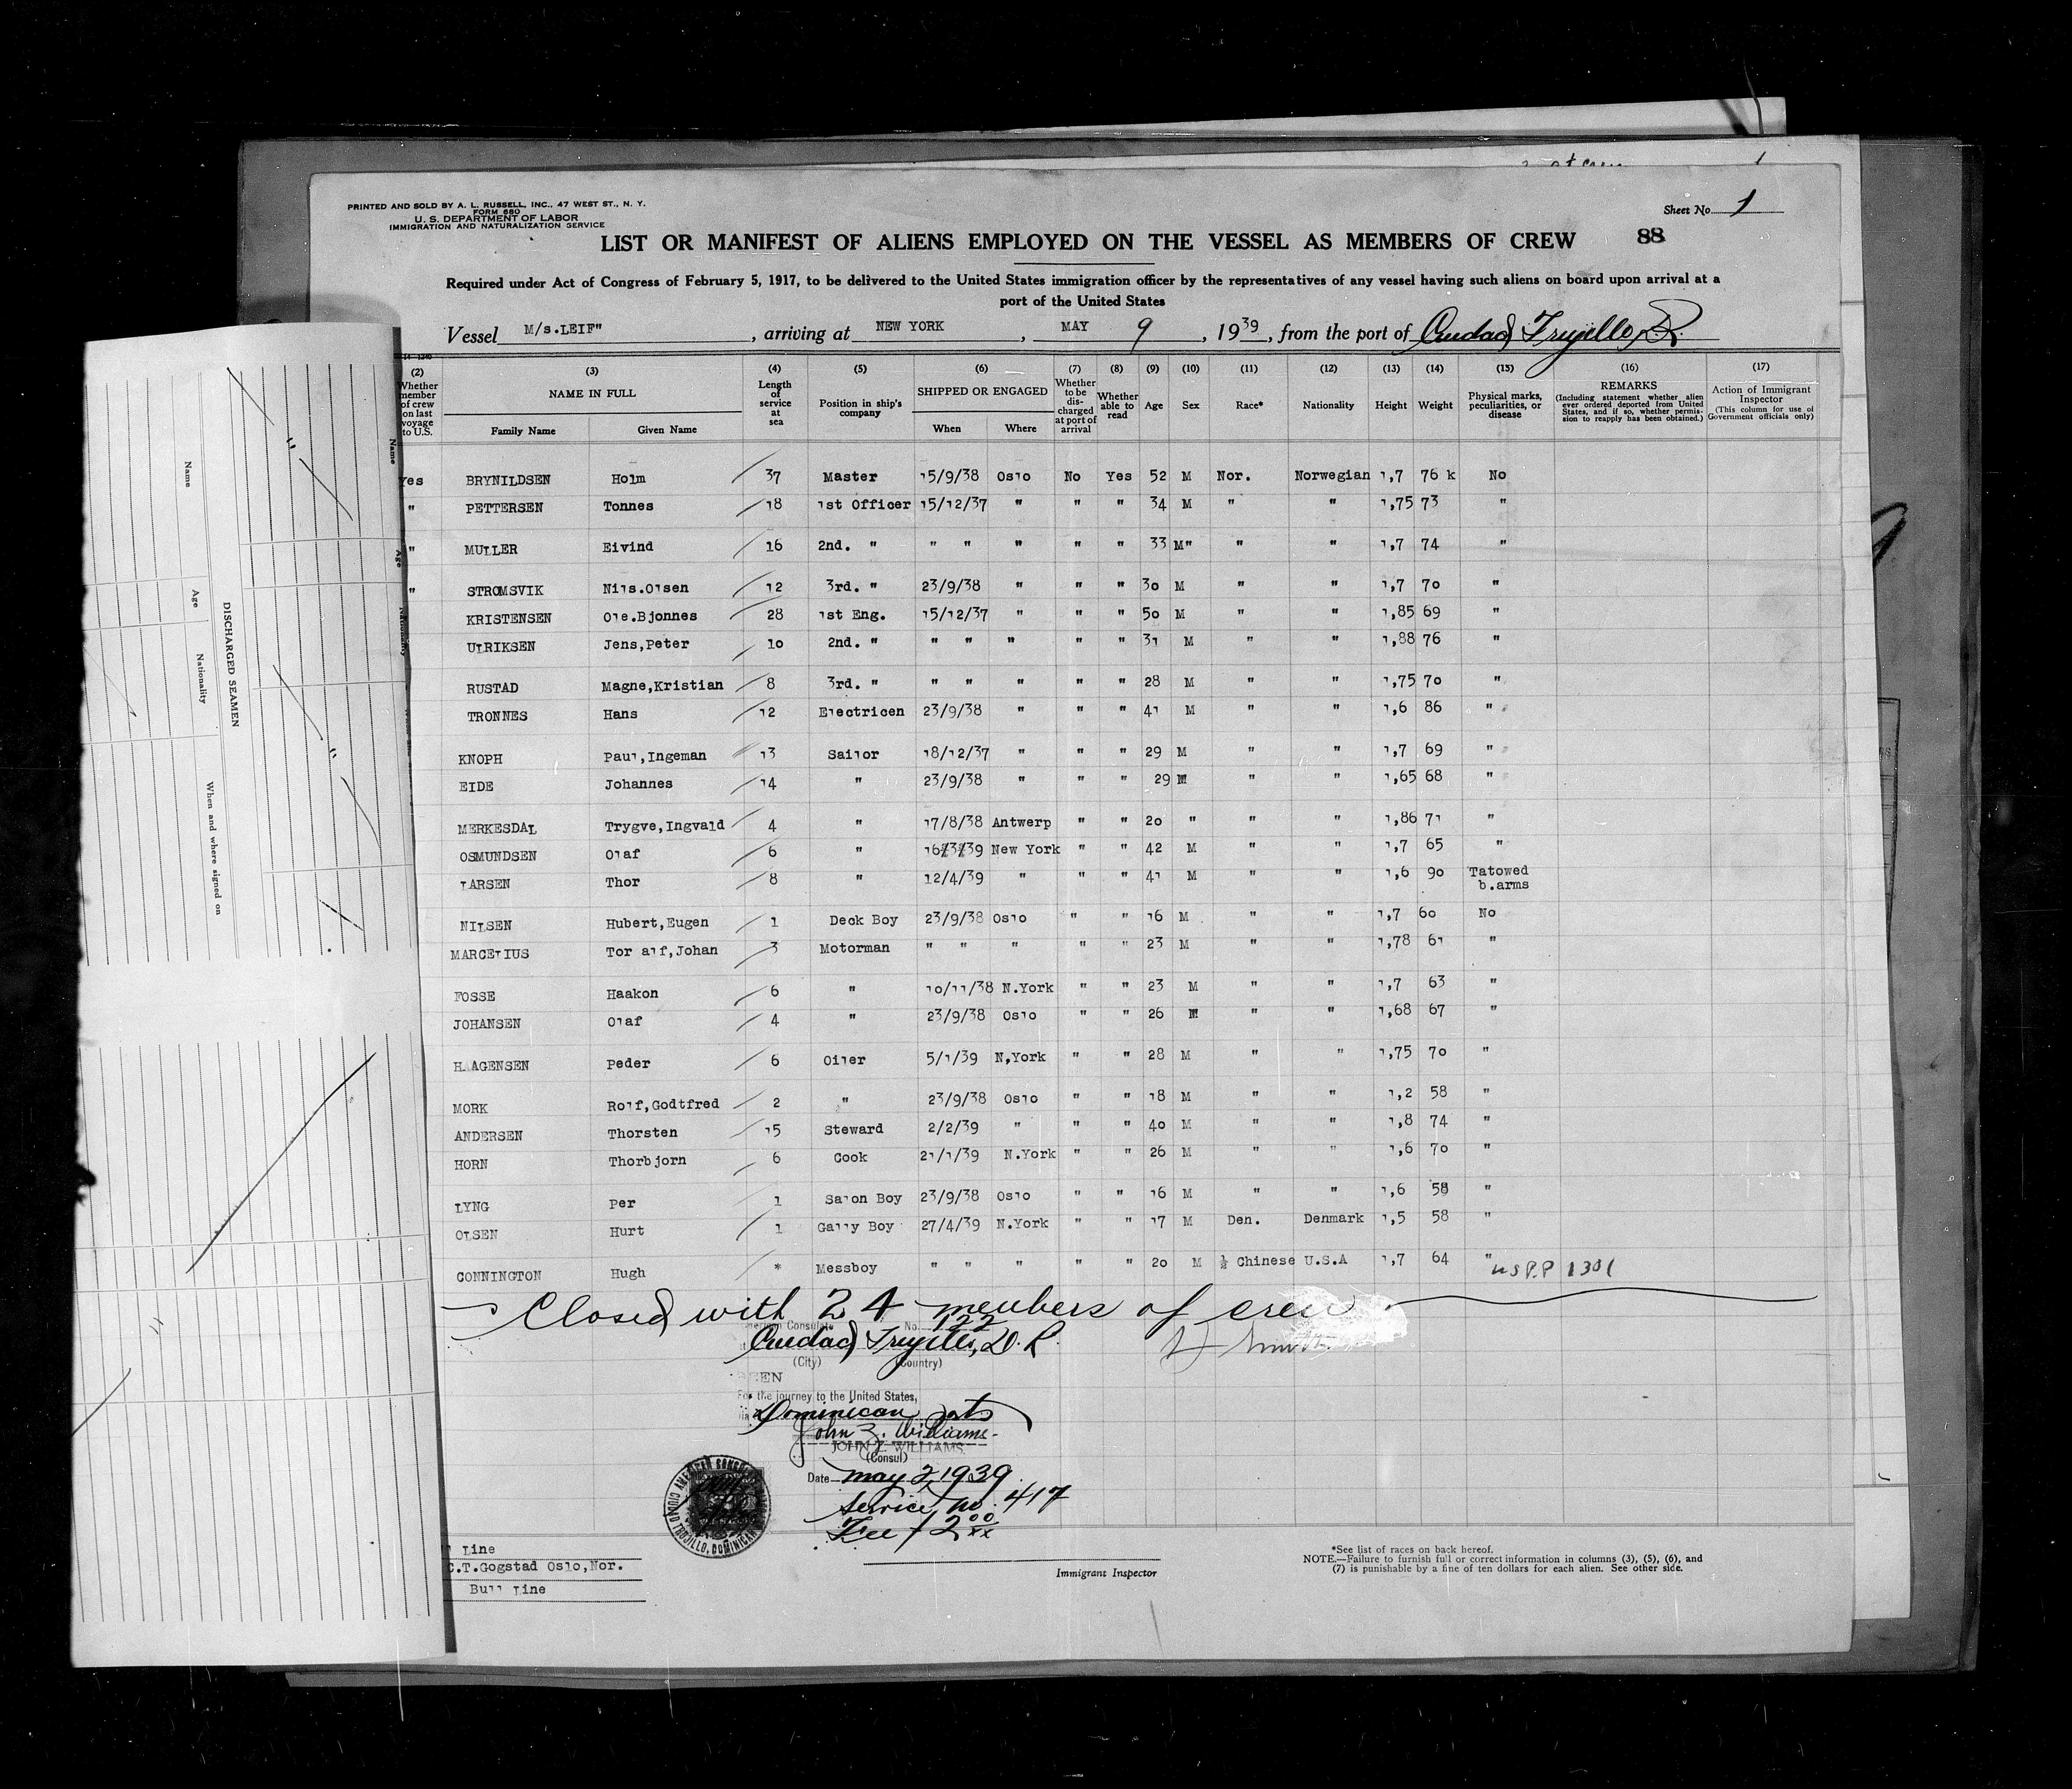 PRINTED AND SOLD BY A. L. RUSSELL, INC., 47 WEST ST., N. Y.
FORM 680
U. S. DEPARTMENT OF LABOR
IMMIGRATION AND NATURALIZATION SERVICE
Sheet No. 1
LIST OR MANIFEST OF ALIENS EMPLOYED ON THE VESSEL AS MEMBERS OF CREW
88
Required under Act of Congress of February 5, 1917, to be delivered to the United States immigration officer by the representatives of any vessel having such aliens on board upon arrival at a
port of the United States
Vessel M/s.LEIF" , arriving at NEW YORK , MAY 9 , 1939 , from the port of Ciudad Trujillo, D.R.
(2) Whether member of crew on last voyage to U.S.
(3) NAME IN FULL Family Name Given Name
(4) Length of service at sea
(5) Position in ship's company
(6) SHIPPED OR ENGAGED When Where
(7) Whether to be discharged at port of arrival
(8) Whether able to read
(9) Age
(10) Sex
(11) Race*
(12) Nationality
(13) Height
(14) Weight
(15) Physical marks, peculiarities, or disease
(16) REMARKS (Including statement whether alien ever ordered deported from United States, and if so, whether permission to reapply has been obtained.)
(17) Action of Immigrant Inspector (This column for use of Government officials only)
Yes BRYNILDSEN Holm 37 Master 15/9/38 Oslo No Yes 52 M Nor. Norwegian 1,7 76 k No
" PETTERSEN Tonnes 18 1st Officer 15/12/37 " " " 34 M " " 1,75 73 "
" MULLER Eivind 16 2nd. " " " " " " 33 M" " " 1,7 74 "
" STROMSVIK Nils.Olsen 12 3rd. " 23/9/38 " " " 30 M " " 1,7 70 "
KRISTENSEN Ole.Bjonnes 28 1st Eng. 15/12/37 " " " 50 M " " 1,85 69 "
ULRIKSEN Jens,Peter 10 2nd. " " " " " " 31 M " " 1,88 76 "
RUSTAD Magne,Kristian 8 3rd. " " " " " " 28 M " " 1,75 70 "
TRONNES Hans 12 Electricen 23/9/38 " " " 41 M " " 1,6 86 "
KNOPH Paul,Ingeman 13 Sailor 18/12/37 " " " 29 M " " 1,7 69 "
EIDE Johannes 14 " 23/9/38 " " " 29 M " " 1,65 68 "
MERKESDAL Trygve,Ingvald 4 " 17/8/38 Antwerp " " 20 " " " 1,86 71 "
OSMUNDSEN Olaf 6 " 16/3/39 New York " " 42 M " " 1,7 65 "
LARSEN Thor 8 " 12/4/39 " " " 41 M " " 1,6 90 Tatowed b.arms
NILSEN Hubert,Eugen 1 Deck Boy 23/9/38 Oslo " " 16 M " " 1,7 60 No
MARCELIUS Tor alf,Johan 3 Motorman " " " " " 23 M " " 1,78 61 "
FOSSE Haakon 6 " 10/11/38 N.York " " 23 M " " 1,7 63 "
JOHANSEN Olaf 4 " 23/9/38 Oslo " " 26 M " " 1,68 67 "
HAAGENSEN Peder 6 Oiler 5/1/39 N,York " " 28 M " " 1,75 70 "
MORK Rolf,Godtfred 2 " 23/9/38 Oslo " " 18 M " " 1,2 58 "
ANDERSEN Thorsten 15 Steward 2/2/39 " " " 40 M " " 1,8 74 "
HORN Thorbjorn 6 Cook 21/1/39 N.York " " 26 M " " 1,6 70 "
LYNG Per 1 Salon Boy 23/9/38 Oslo " " 16 M " " 1,6 58 "
OLSEN Hurt 1 Gally Boy 27/4/39 N.York " " 17 M Den. Denmark 1,5 58 "
CONNINGTON Hugh * Messboy " " " " " 20 M ½ Chinese U.S.A 1,7 64 "
US P.P 1301
Closed with 24 members of crew
American Consulate No. 122
Ciudad Trujillo, D.R.
(City) (Country)
SEEN
For the journey to the United States,
via Dominican ports
John Z. Williams
JOHN Z. WILLIAMS
(Consul)
Date May 2, 1939
Service no. 417
Fee $ 2 00/xx
AMERICAN CONSULATE CIUDAD TRUJILLO, DOMINICAN
Line
C.T.Gogstad Oslo,Nor.
Bull Line
Immigrant Inspector
*See list of races on back hereof.
NOTE.—Failure to furnish full or correct information in columns (3), (5), (6), and
(7) is punishable by a fine of ten dollars for each alien. See other side.
DISCHARGED SEAMEN
Name
Age
Nationality
When and where signed on
Name
Age
Nationality